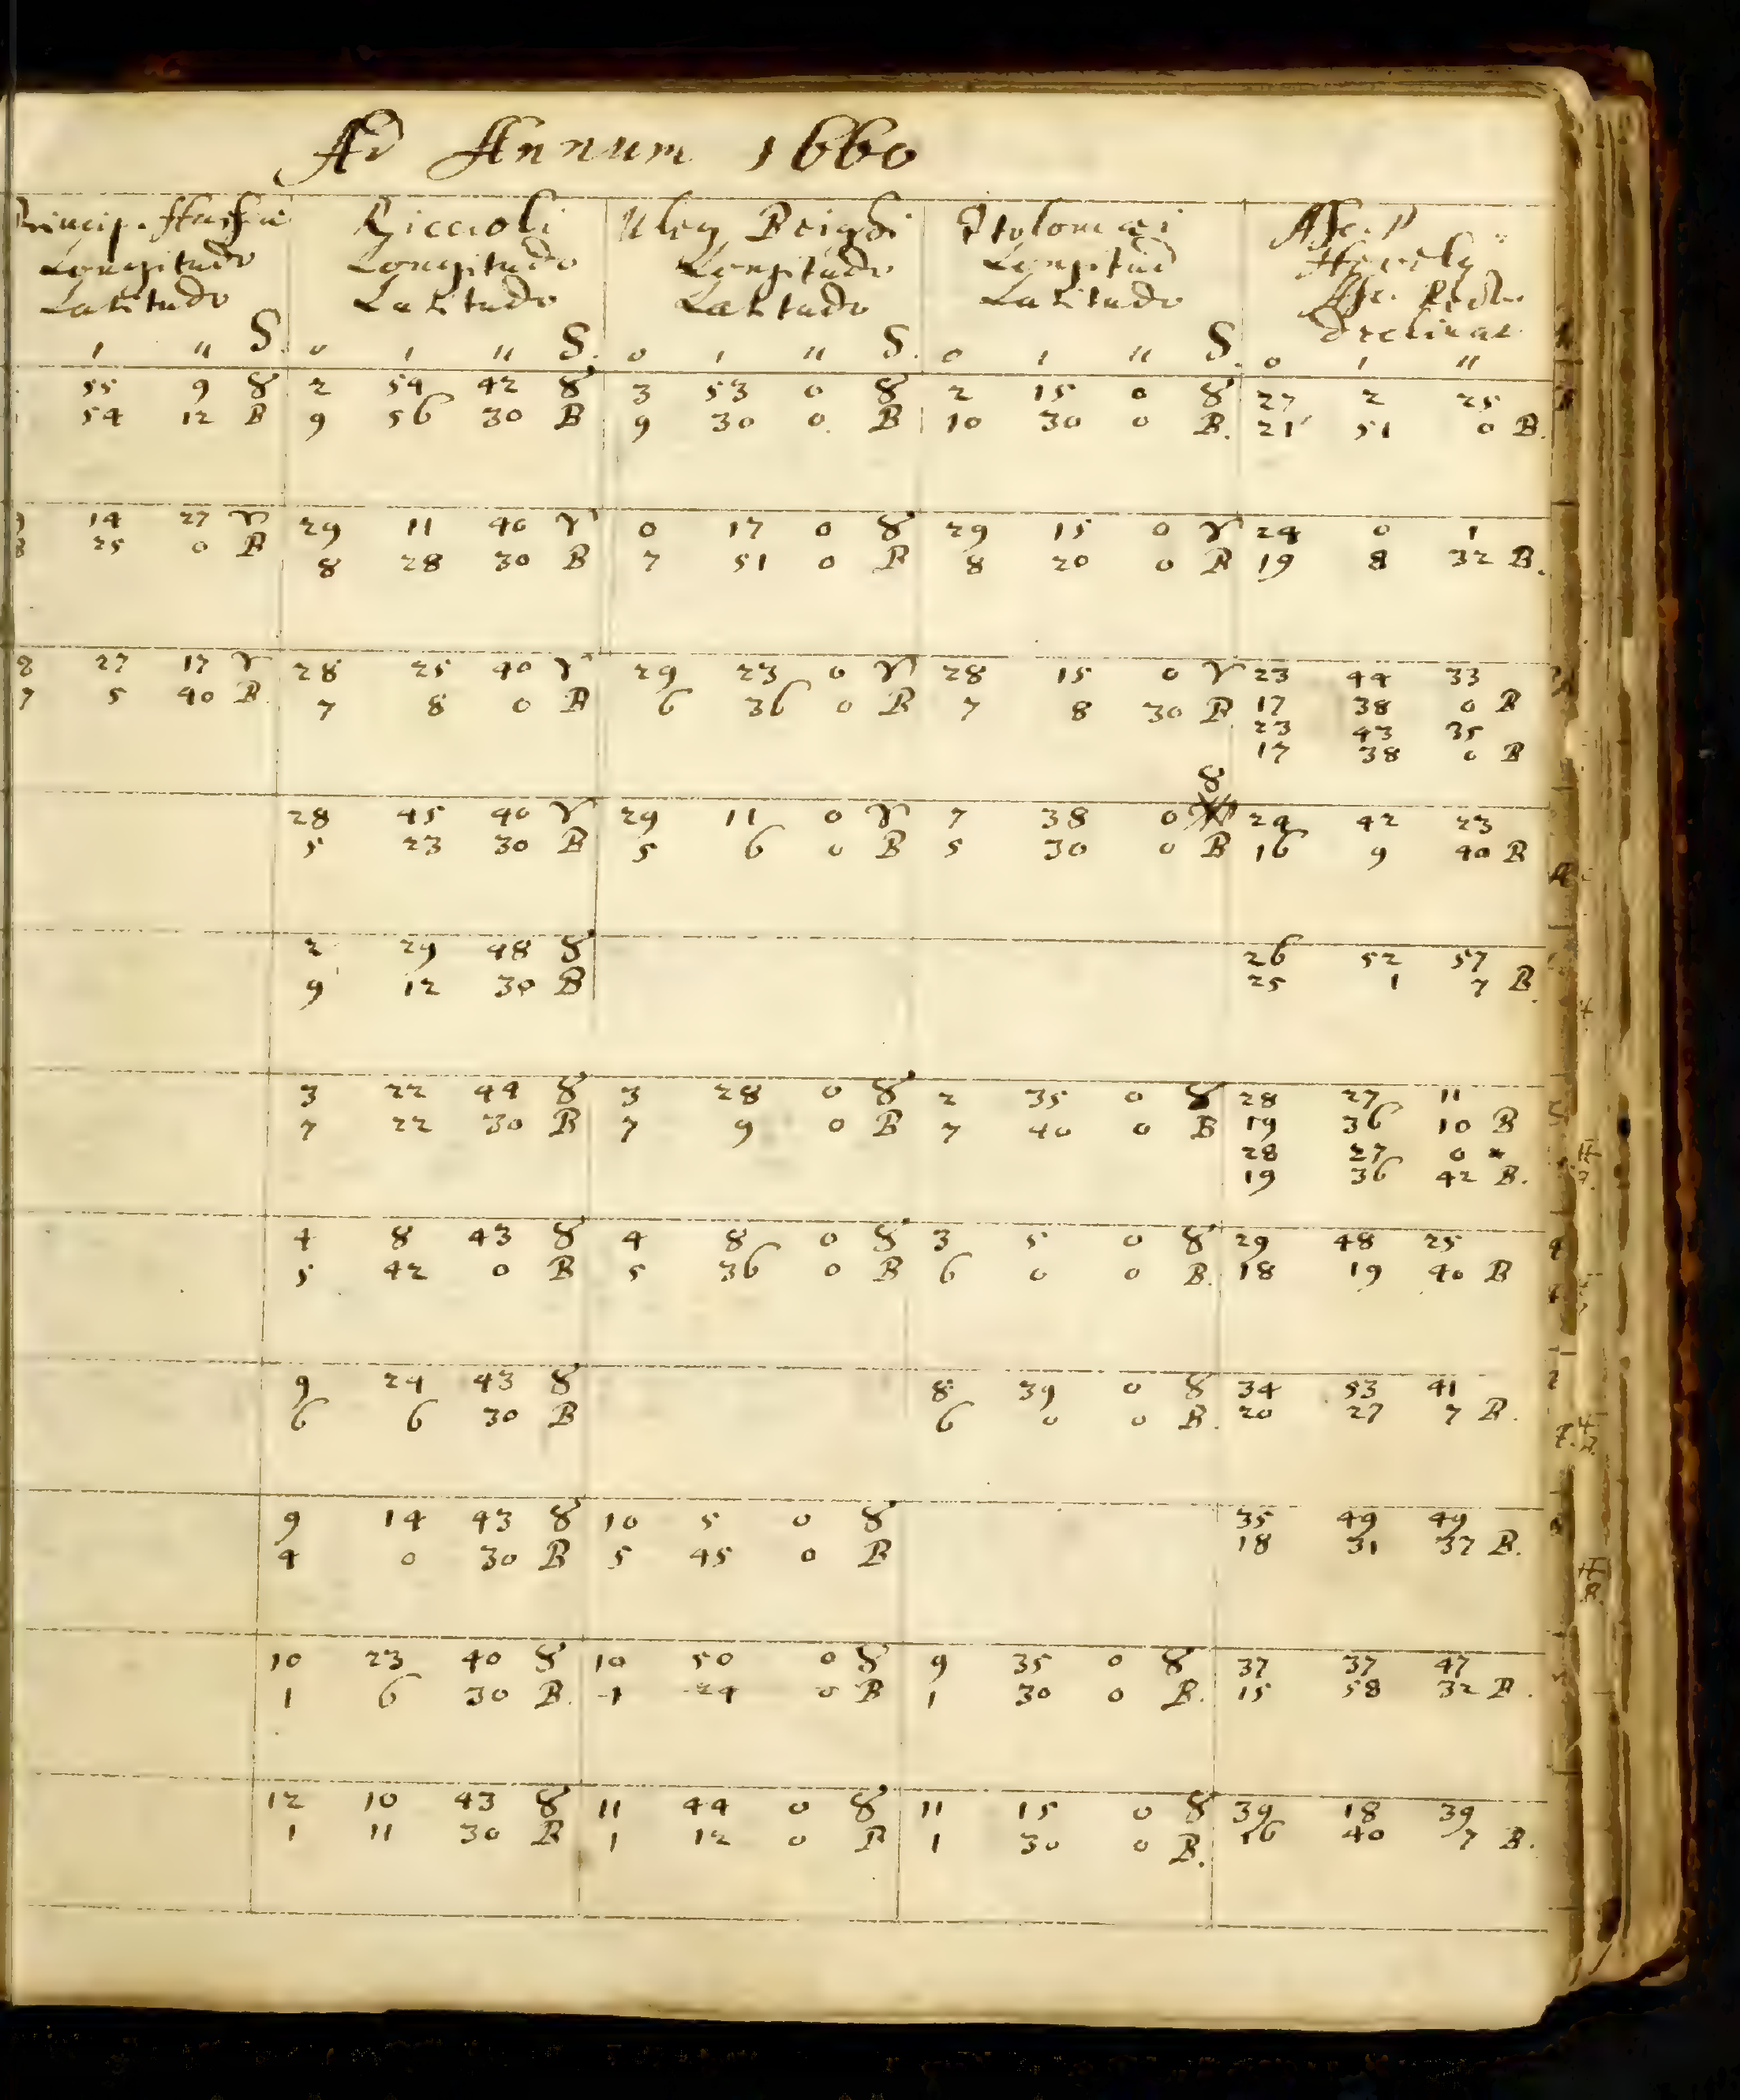 Ad Annum 1660
Princip. Hassiæ Riccioli Uleg Beighi Ptolomæi
Longitudo Longitudo Longitudo Longitud Hevely
Latitudo Latitudo Latitudo Latitudo Asc. Rect.
Declinat
' " S. o ' " S. o ' " S. o ' " S. o ' "
55 9 ♉ 2 54 42 ♉ 3 53 0 ♉ 2 15 0 ♉ 27 2 25
54 12 B 9 56 30 B 9 30 0 B 10 30 0 B. 21 51 0 B.
14 27 ♈ 29 11 40 ♈ 0 17 0 ♉ 29 15 0 ♈ 24 0 1
8 25 0 B 8 28 30 B 7 51 0 B 8 20 0 B 19 8 32 B.
8 27 17 ♈ 28 25 40 ♈ 29 23 0 ♈ 28 15 0 ♈ 23 44 33
7 5 40 B 7 8 0 B 6 36 0 B 7 8 30 B 17 38 0 B
23 43 35
17 38 0 B
♉
28 45 40 ♈ 29 11 0 ♈ 7 38 0 24 42 23
5 23 30 B 5 6 0 B 5 30 0 B 16 9 40 B
2 29 48 ♉ 26 52 57
9 12 30 B 25 1 7 B.
3 22 44 ♉ 3 28 0 ♉ 2 35 0 ♉ 28 27 11
7 22 30 B 7 9 0 B 7 40 0 B 19 36 10 B
28 27 0 *
19 36 42 B.
4 8 43 ♉ 4 8 0 ♉ 3 5 0 ♉ 29 48 25
5 42 0 B 5 36 0 B 6 0 0 B. 18 19 40 B
9 24 43 ♉ 8 39 0 ♉ 34 53 41
6 6 30 B 6 0 0 B. 20 27 7 B.
9 14 43 ♉ 10 5 0 ♉ 35 49 49
4 0 30 B 5 45 0 B 18 31 37 B.
10 23 40 ♉ 10 50 0 ♉ 9 35 0 ♉ 37 37 47
1 6 30 B. 1 24 0 B 1 30 0 B. 15 58 32 B.
12 10 43 ♉ 11 44 0 ♉ 11 15 0 ♉ 39 18 39
1 11 30 B 1 12 0 B 1 30 0 B. 16 40 7 B.